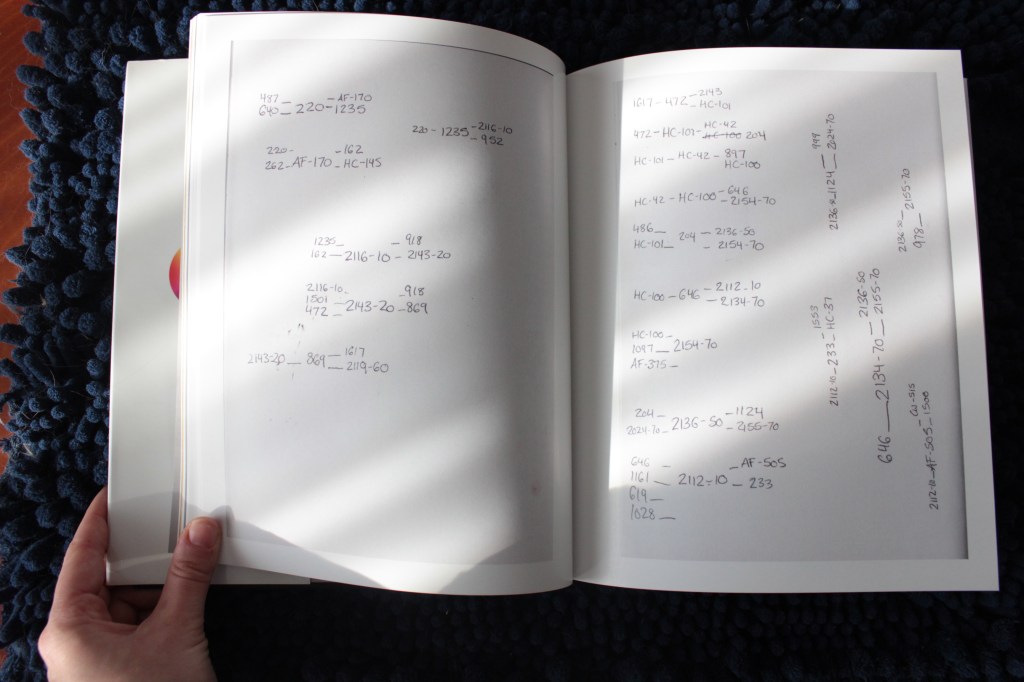 487 — — AF-170
640 — 220 — 1235
220 — 1235 — 2116-10
— 952
220 - — 162
262 — AF-170 — HC-145
1235 — — 918
162 — 2116-10 — 2143-20
2116-10 — — 918
1501 — 2143-20 — 869
472 —
2143-20 — 869 — 1617
— 2119-60
1617 — 472 — 2143
— HC-101
HC-42
472 — HC-101 — HC-100 204
HC-101 — HC-42 — 897
HC-100
HC-42 — HC-100 — 646
— 2154-70
486 — 204 — 2136-50
HC-101 — — 2154-70
HC-100 — 646 — 2112-10
— 2134-70
HC-100 —
1097 — 2154-70
AF-375 —
204 — — 1124
2024-70 — 2136-50 — 2155-70
646 — — AF-505
1161 — 2112-10 — 233
619 —
1028 —
— 999
2136-50 — 1124 — 2024-70
2136-50 — 2155-70
978 —
— 1553
2112-10 — 233 — HC-37
— 2136-50
646 — 2134-70 — 2155-70
2112-10 — AF-505 — 1500